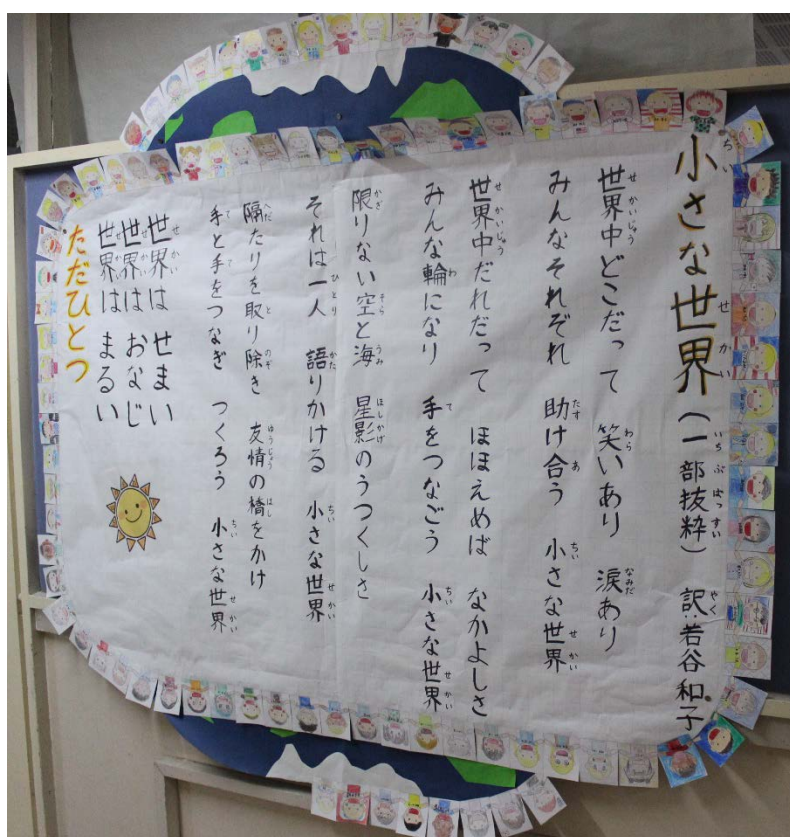 小さな世界(一部抜粋) 訳:若谷和子
世界中どこだって 笑いあり 涙あり
みんなそれぞれ 助け合う 小さな世界
世界中だれだって ほほえめば なかよしさ
みんな輪になり 手をつなごう 小さな世界
限りない空と海 星影のうつくしさ
それは一人 語りかける 小さな世界
隔たりを取り除き 友情の橋をかけ
手と手をつなぎ つくろう 小さな世界
世界は せまい
世界は おなじ
世界は まるい
ただひとつ